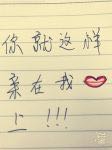 你就这样
亲在我
上!!!